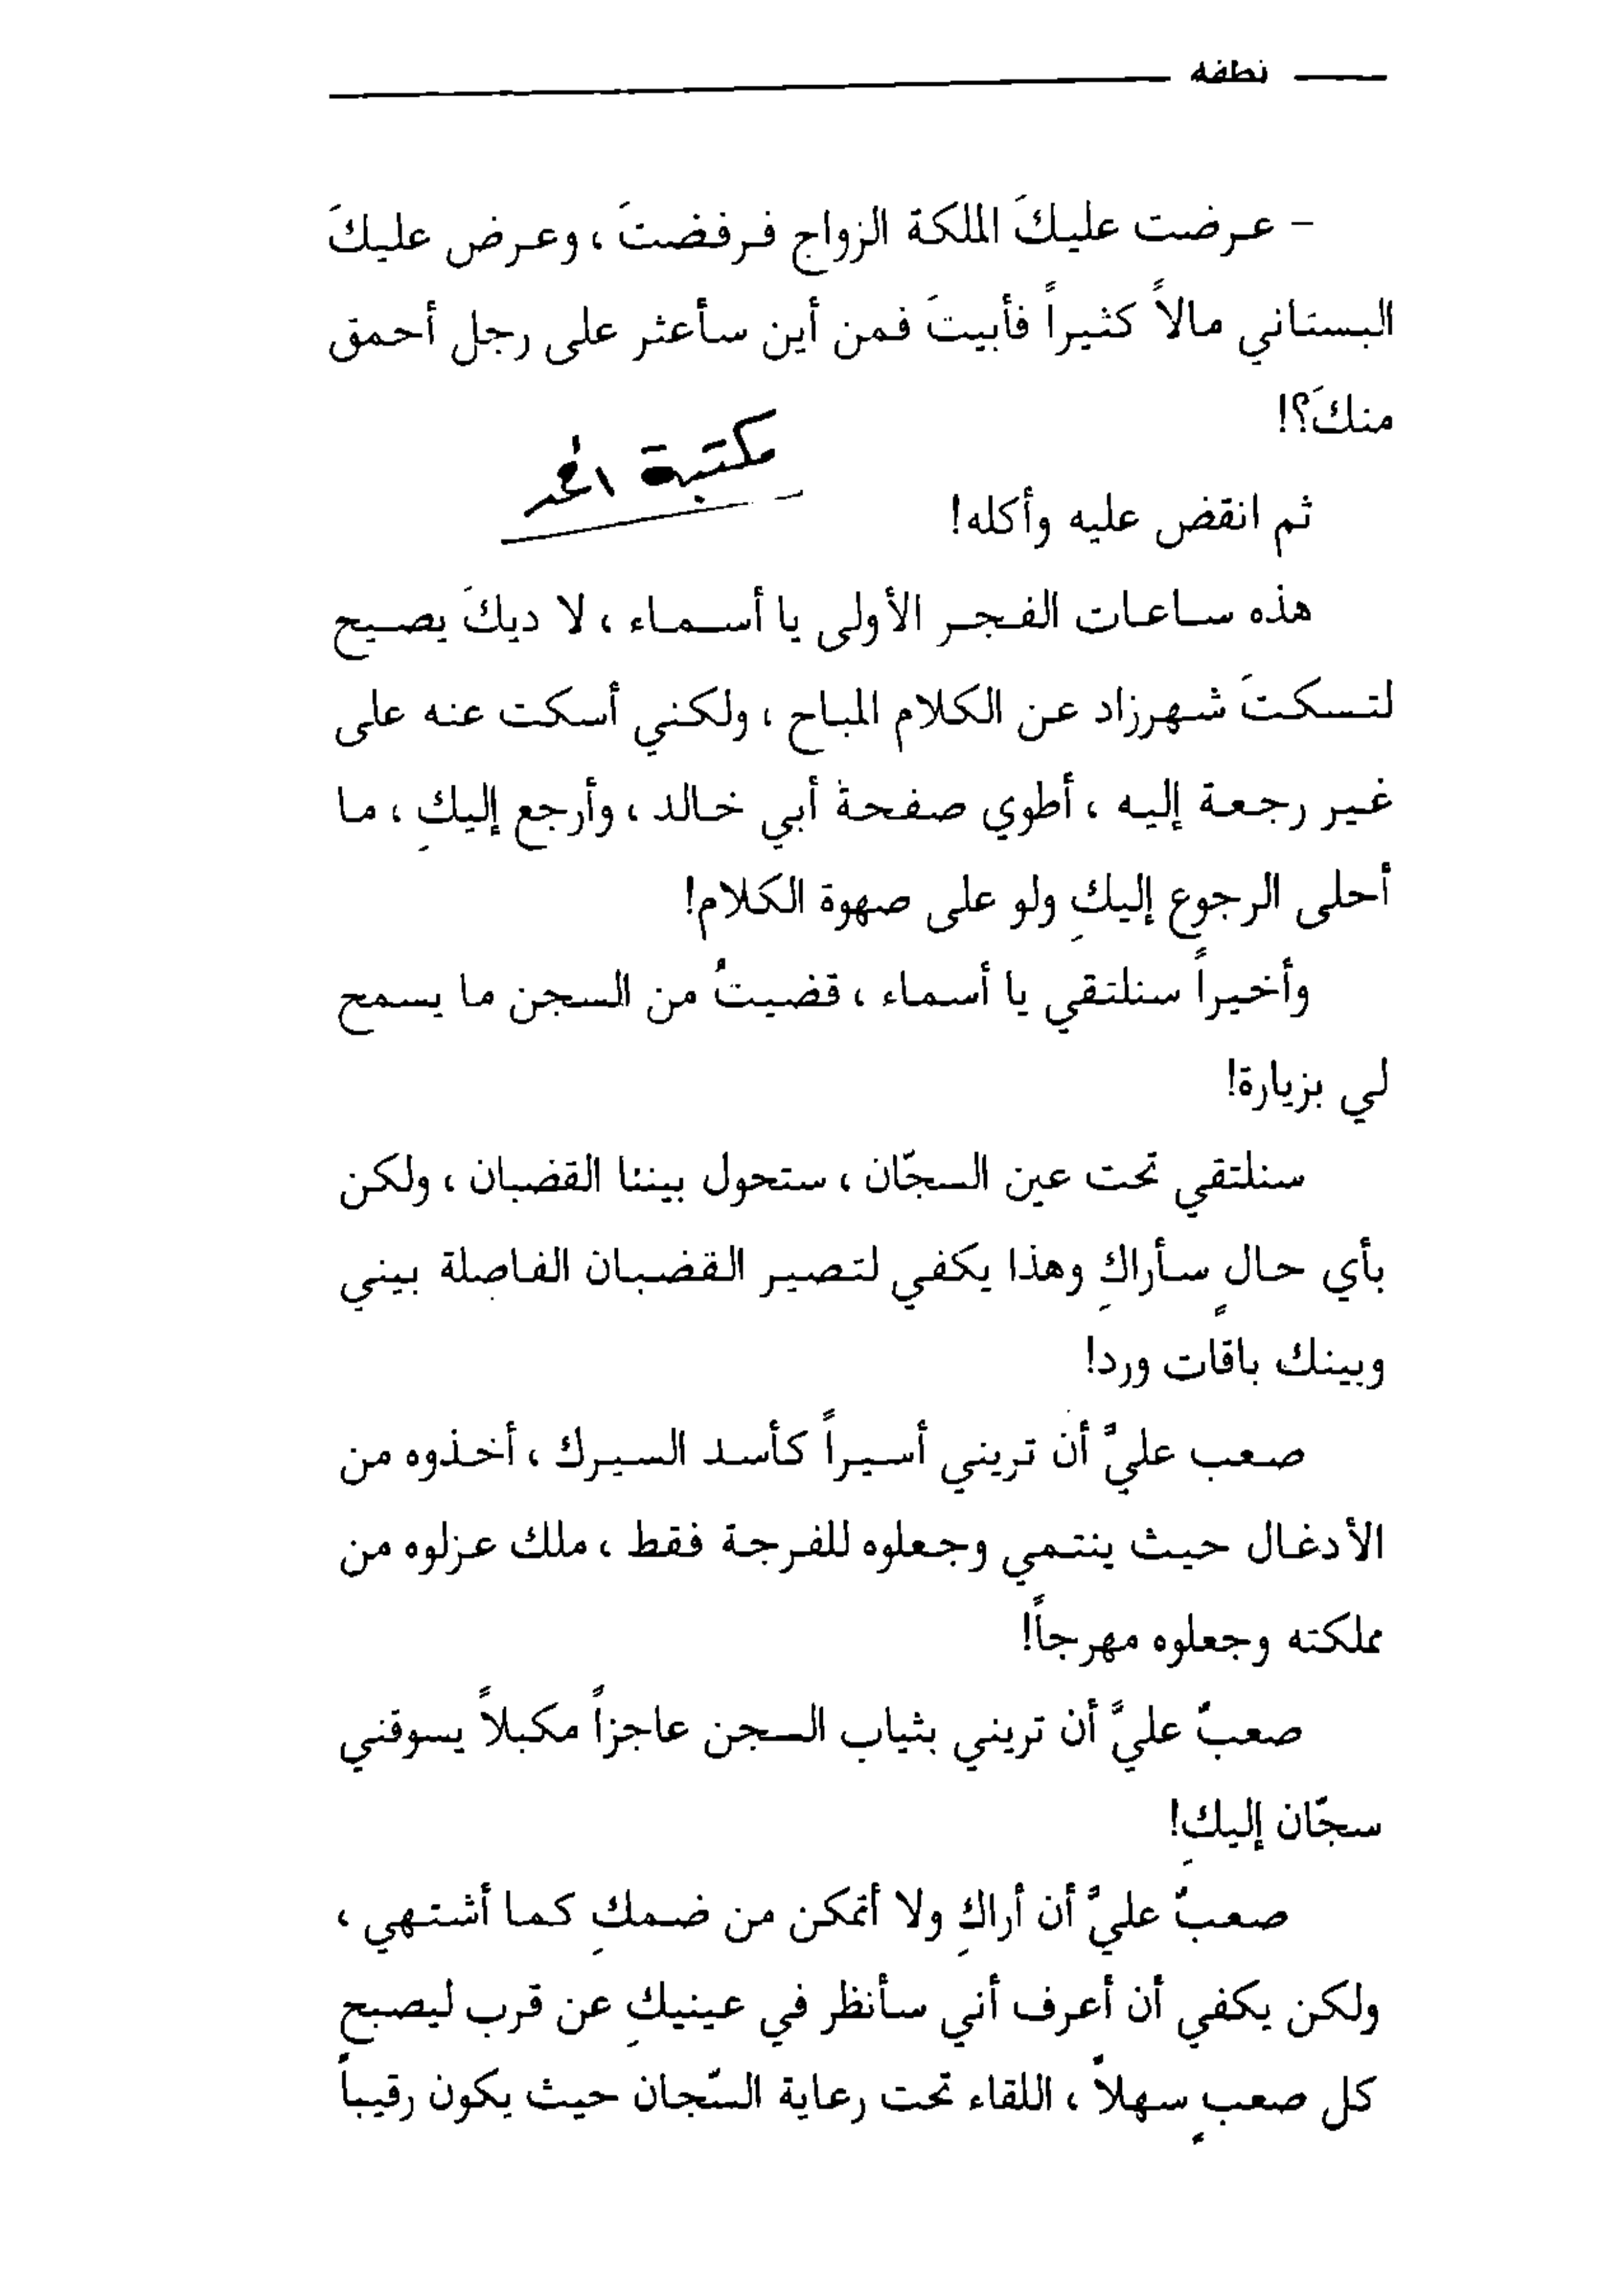 نطفه
- عرضت عليكَ الملكة الزواج فرفضتَ ، وعرض عليكَ
البستاني مالاً كثيراً فأبيتَ فمن أين سأعثر على رجل أحمق
منكَ؟!
مكتبة
ثم انقض عليه وأكله!
هذه ساعات الفجر الأولى يا أسماء ، لا ديكَ يصيح
لتسكتَ شهرزاد عن الكلام المباح ، ولكني أسكت عنه على
غير رجعة إليه ، أطوي صفحة أبي خالد ، وأرجع إليكِ ، ما
أحلى الرجوع إليكِ ولو على صهوة الكلام!
وأخيراً سنلتقي يا أسماء ، قضيتُ من السجن ما يسمح
لي بزيارة!
سنلتقي تحت عين السجّان ، ستحول بيننا القضبان ، ولكن
بأي حالٍ سأراكِ وهذا يكفي لتصير القضبان الفاصلة بيني
وبينك باقات ورد!
صعب عليَّ أن تريني أسيراً كأسد السيرك ، أخذوه من
الأدغال حيث ينتمي وجعلوه للفرجة فقط ، ملك عزلوه من
مملكته وجعلوه مهرجاً!
صعبٌ عليَّ أن تريني بثياب السجن عاجزاً مكبلاً يسوقني
سجّان إليكِ!
صعبٌ عليَّ أن أراكِ ولا أتمكن من ضمكِ كما أشتهي ،
ولكن يكفي أن أعرف أني سأنظر في عينيكِ عن قرب ليصبح
كل صعبٍ سهلاً ، اللقاء تحت رعاية السّجان حيث يكون رقيباً